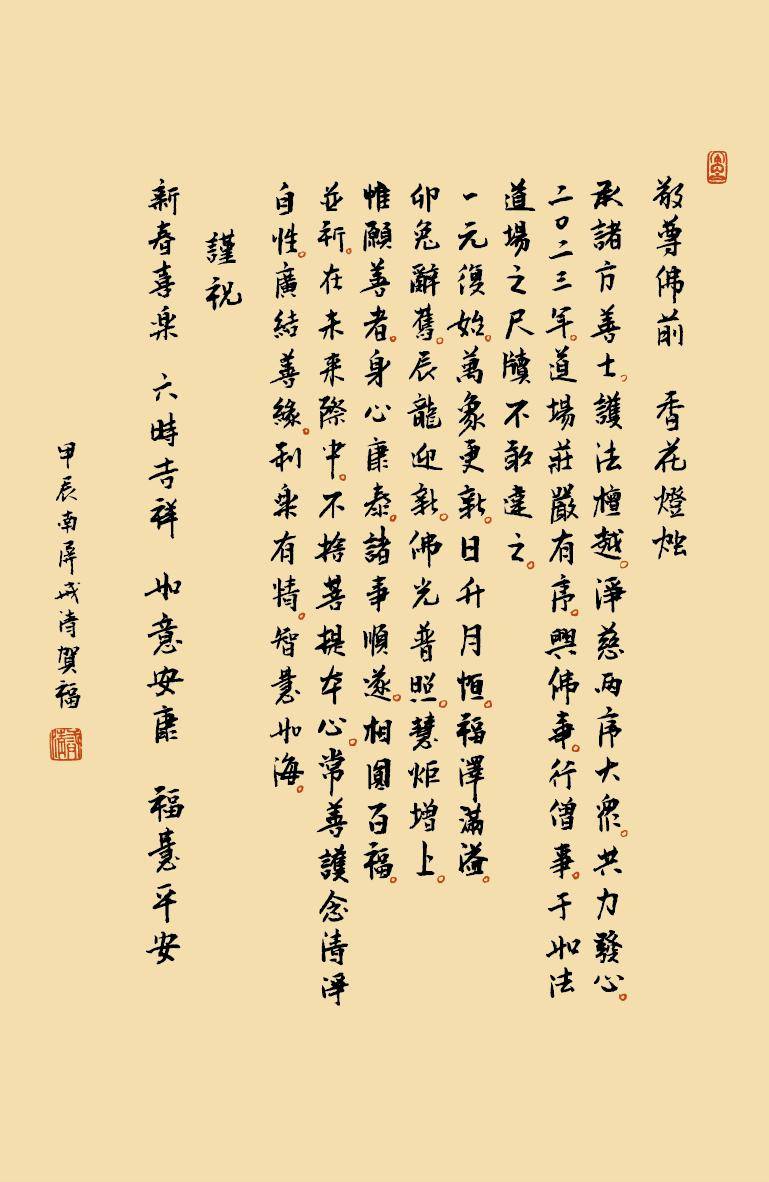 敬尊佛前　香花燈烛
承諸方善士。護法檀越。淨慈兩序大衆。共力發心。
二〇二三年。道場莊嚴有序。興佛事。行僧事。于如法
道場之尺牘不敢違之。
一元復始。萬象更新。日升月恒。福澤滿溢。
卯兔辭舊。辰龍迎新。佛光普照。慧炬增上。
惟願善者。身心康泰。諸事順遂。相圓百福。
並祈。在未来際中。不捨菩提本心。常善護念清淨
自性。廣結善緣。利樂有情。智慧如海。
謹祝
新春喜樂　六時吉祥　如意安康　福慧平安
甲辰南屏戒清賀福